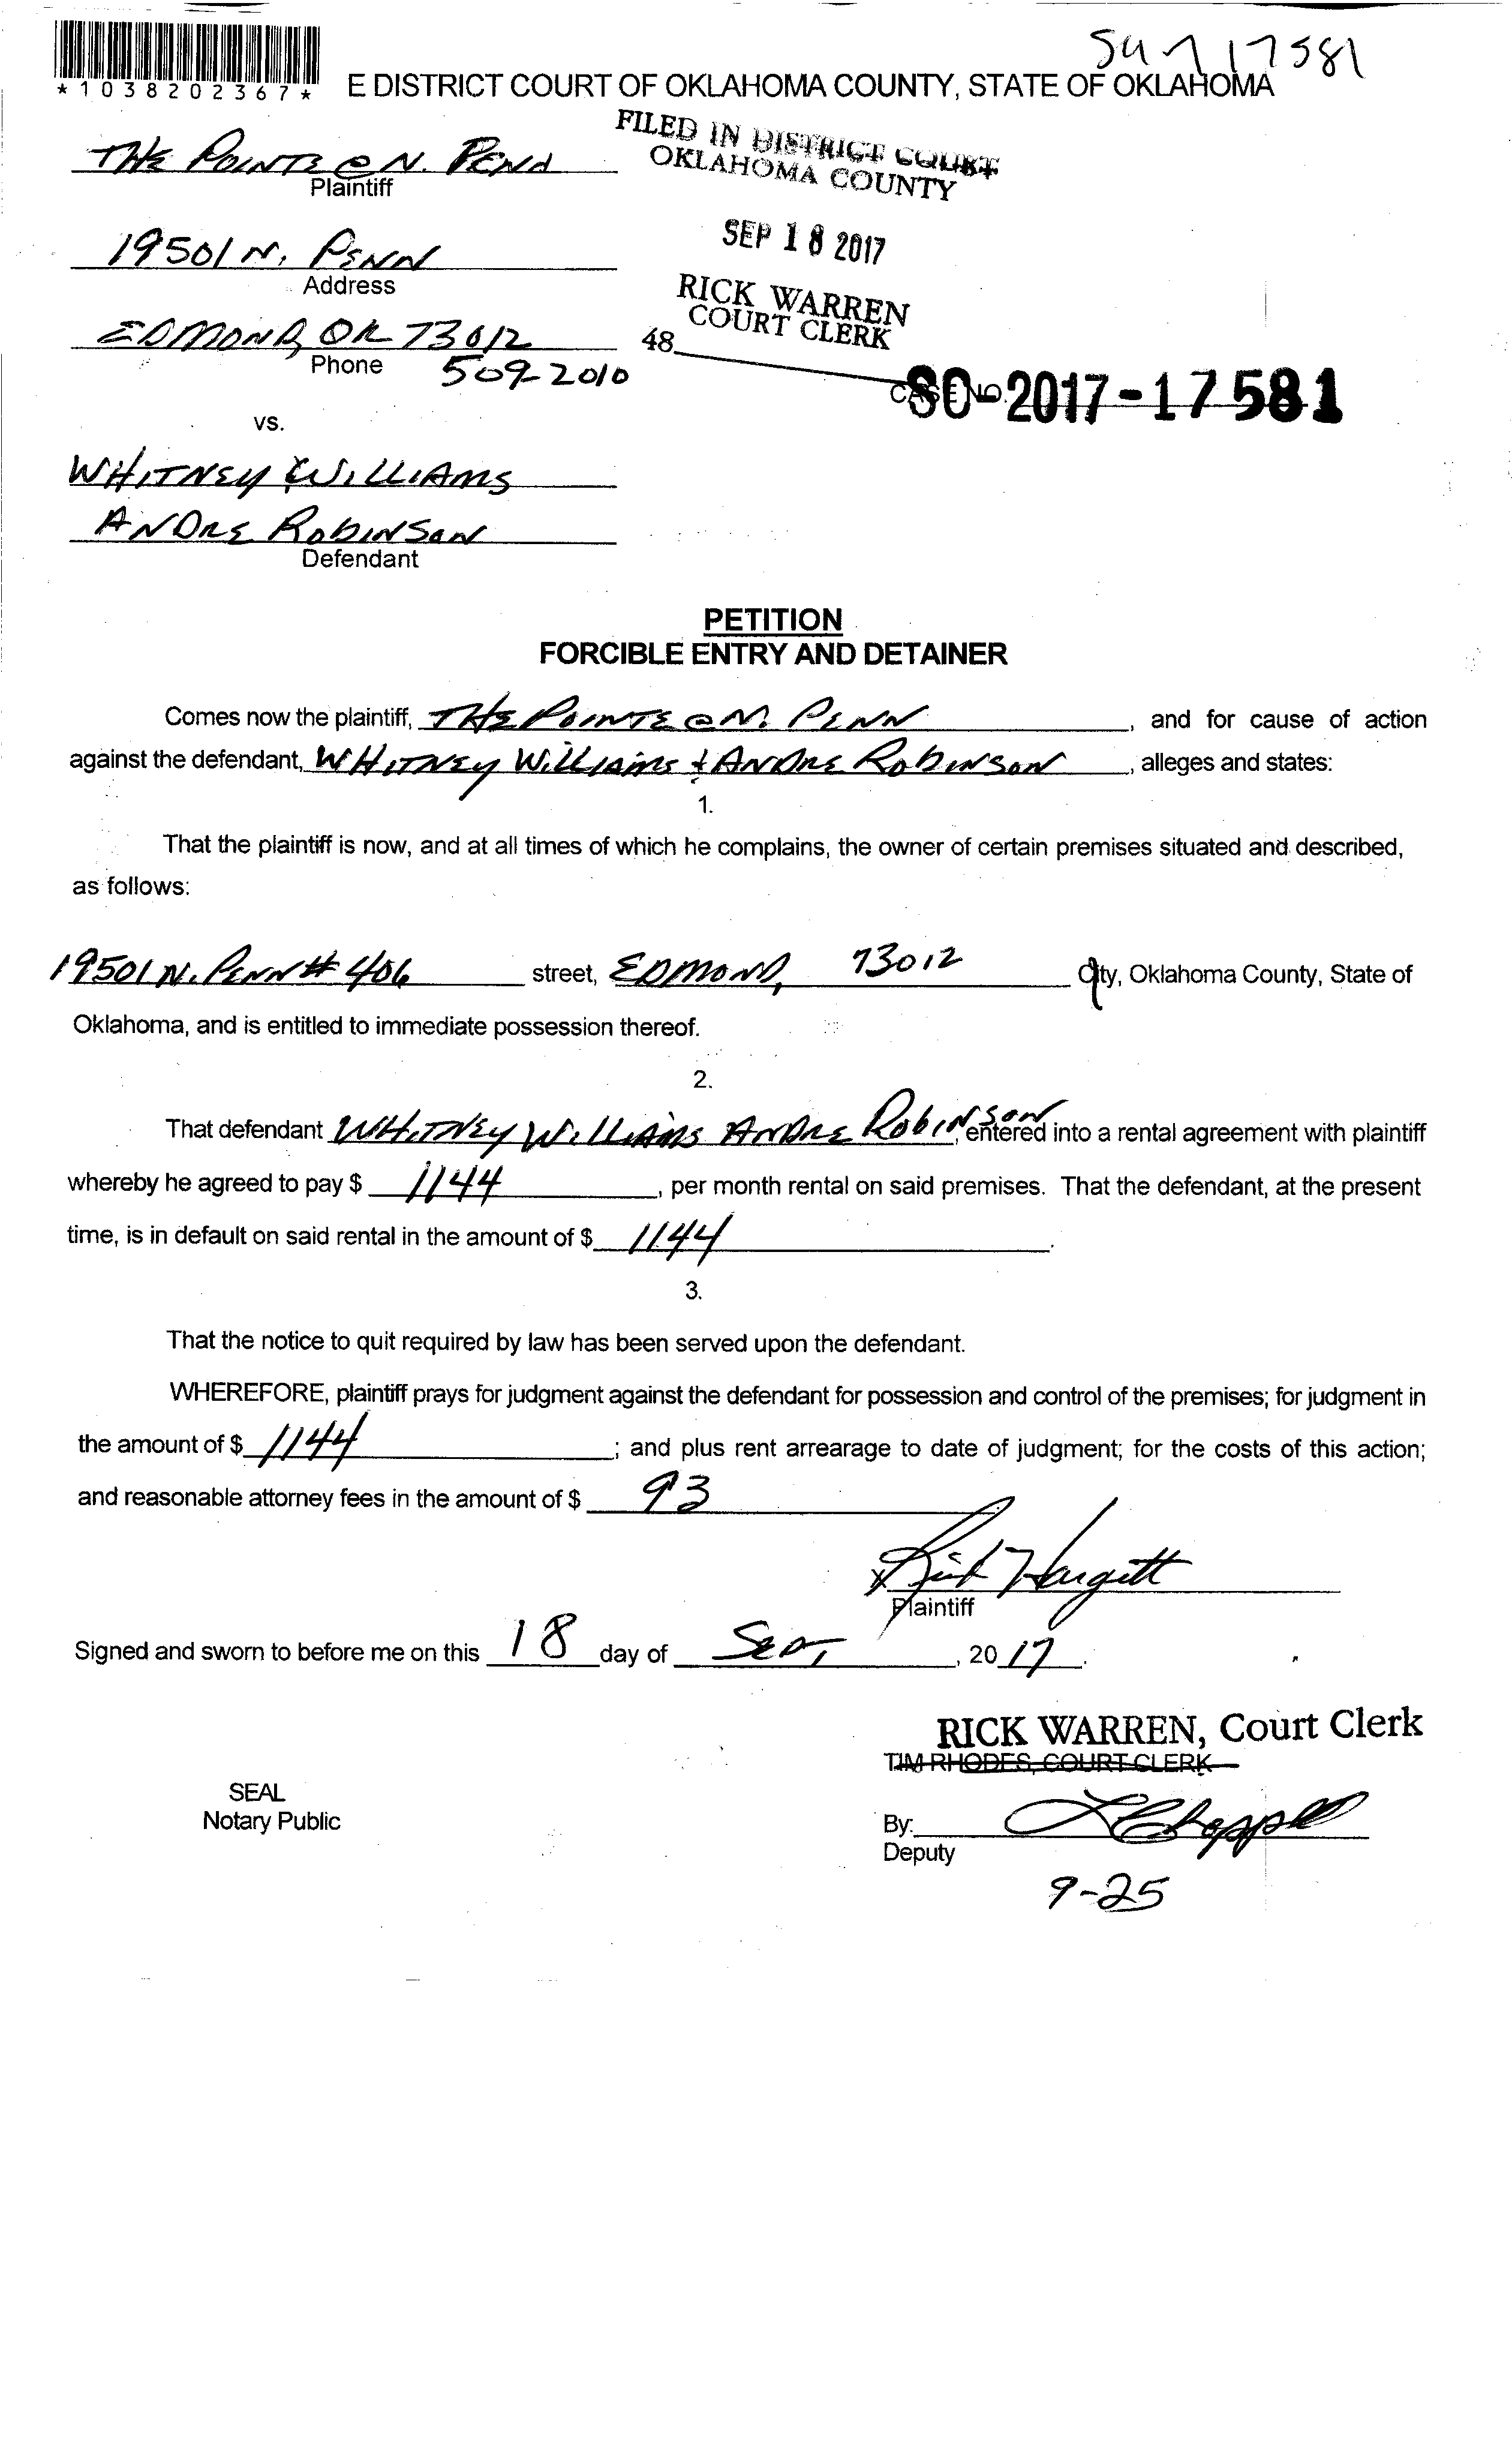 SC 17 17581
*1038202367*
E DISTRICT COURT OF OKLAHOMA COUNTY, STATE OF OKLAHOMA
FILED IN DISTRICT COURT
OKLAHOMA COUNTY
THE POINTE @ N. PENN
Plaintiff
SEP 18 2017
19501 N. PENN
Address
RICK WARREN
COURT CLERK
EDMOND, OK 73012
48
Phone 509-2010
CASE NO. SC-2017-17581
vs.
WHITNEY WILLIAMS
ANDRE ROBINSON
Defendant
PETITION
FORCIBLE ENTRY AND DETAINER
Comes now the plaintiff, THE POINTE @ N. PENN, and for cause of action
against the defendant, WHITNEY WILLIAMS & ANDRE ROBINSON, alleges and states:
1.
That the plaintiff is now, and at all times of which he complains, the owner of certain premises situated and described,
as follows:
19501 N. PENN # 406 street, EDMOND, 73012 City, Oklahoma County, State of
Oklahoma, and is entitled to immediate possession thereof.
2.
That defendant WHITNEY WILLIAMS ANDRE ROBINSON, entered into a rental agreement with plaintiff
whereby he agreed to pay $ 1144, per month rental on said premises. That the defendant, at the present
time, is in default on said rental in the amount of $ 1144.
3.
That the notice to quit required by law has been served upon the defendant.
WHEREFORE, plaintiff prays for judgment against the defendant for possession and control of the premises; for judgment in
the amount of $ 1144; and plus rent arrearage to date of judgment; for the costs of this action;
and reasonable attorney fees in the amount of $ 93
X Rick Hargett
Plaintiff
Signed and sworn to before me on this 18 day of Sept, 2017.
RICK WARREN, Court Clerk
TIM RHODES, COURT CLERK
SEAL
Notary Public
By:
Deputy
9-25